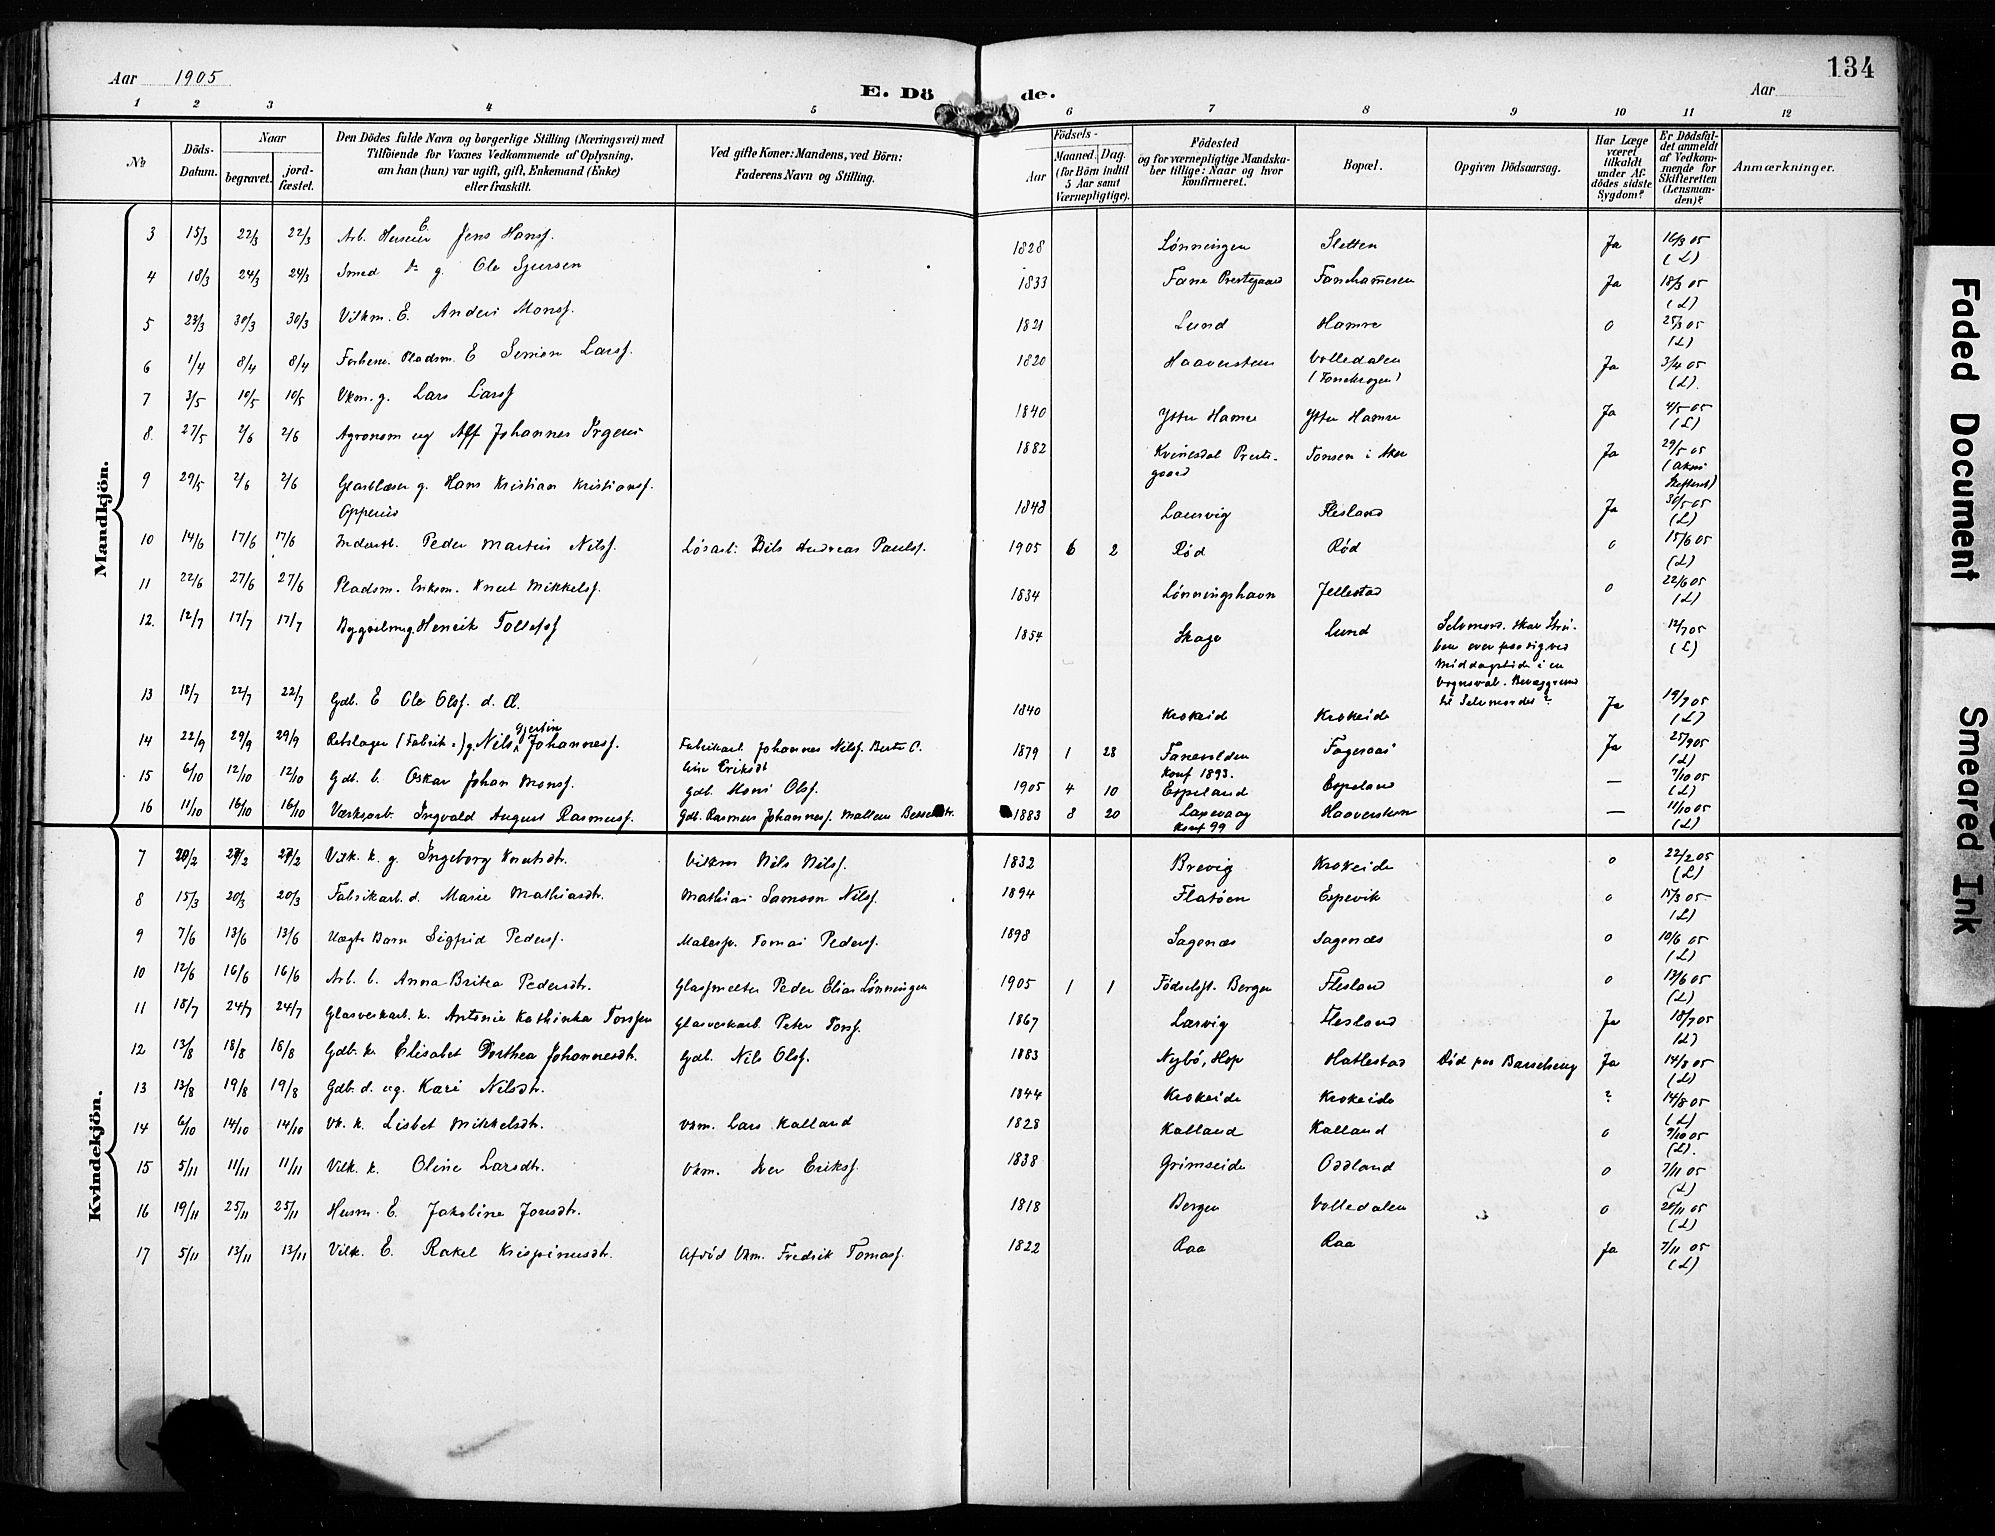 134
Aar 1905
E. Dö de.
Aar
1 2 3 4 5 6 7 8 9 10 11 12
№
Döds-
Datum.
Naar
begravet.
jord-
fæstet.
Den Dödes fulde Navn og borgerlige Stilling (Næringsvei) med
Tilföiende for Voxnes Vedkommende af Oplysning,
om han (hun) var ugift, gift, Enkemand (Enke)
eller fraskilt.
Ved gifte Koner: Mandens, ved Börn:
Faderens Navn og Stilling.
Födsels-
Aar
Maaned.
Dag.
(for Börn indtil
5 Aar samt
Værnepligtige).
Födested
og for værnepligtige Mandska-
ber tillige: Naar og hvor
konfirmeret.
Bopæl.
Opgiven Dödsaarsag.
Har Læge
været
tilkaldt
under Af-
dödes sidste
Sygdom?
Er Dödsfal-
det anmeldt
af Vedkom-
mende for
Skifteretten
(Lensman-
den)?
Anmærkninger.
Mandkjön.
3 15/3 22/3 22/3 Arb. E. Jens Hansf. 1828 Lønningen Sletten Ja 16/3 05 (L)
4 18/3 24/3 24/3 Smed g. Ole Sjursen 1833 Fane Prestegaard Fanehameren Ja 18/3 05 (L)
5 23/3 30/3 30/3 Vilkm. E. Anders Monsf. 1821 Lund Hamre o 25/3 05 (L)
6 1/4 8/4 8/4 Pladsm. E Simon Larsf. 1820 Haaverstein Volledalen Ja 3/4 05 (L).
7 3/5 10/5 10/5 Vkm. g. Lars Larsf 1840 Ytter Hamre Ytter Hamre Ja 4/5 05 (L)
8. 27/5 2/6 2/6 Agronom ug Johannes Irgens 1882 Kvinesdal Preste-
gaard Tonsen i Aker Ja 29/5 05
9 29/5 2/6 2/6 Glasblæser g. Hans Kristian Kristiansf.
1848 Laurvig Flesland Ja 30/5 05 (L)
10 14/6 17/6 17/6 Peder Martin Nilsf. Løsarb. Nils Andreas Paulsf. 1905 6 2 Rød Rød o 15/6 05 (L)
11 22/6 27/6 27/6 Pladsm. Enkem. Knut Mikkelsf. 1834 Lønningshavn Jellestad o 22/6 05 (L)
12. 12/7 17/7 17/7 Henrik Tollefsf 1854 Skage Lund Selvmord. Skar Stru-
ben over paa sig ved
Middagstider i en
Vognsval. Bevæggrund
til Selvmordet? 12/7 05 (L)
13 18/7 22/7 22/7 Gdb. E Ole Olsf. d. Æ. 1840 Krokeid Krokeide Ja 19/7 05 (L)
14 22/9 29/9 29/9 Rebslager (Fabrik.) g. Nils Gjertin Johannesf. Fabrikarb. Johannes Nilsf. 1879 1 28
Konf 1893. Fageraas Ja 25/9 05 (L)
15 6/10 12/10 12/10 Gdb. b. Oskar Johan Monsf. Gdb. Mons Olsf. 1905 4 10 Espeland Espeland — 7/10 05 (L)
16 11/10 16/10 16/10 Værksarb. Ingvald August Rasmusf. Gdb. Rasmus Johannesf. 1883 8 20
Konf 99 Haaverstein — 11/10 05 (L)
Kvindekjön.
7 20/2 27/2 27/2 Vilk. k. g. Ingeborg Knutsdt. Vilkm Nils Nilsf. 1832 Brevig Krokeide o 22/2 05 (L)
8 15/3 20/3 20/3 Fabrikarb. d. Marie Mathiasdt. Mathias Samson Nilsf. 1894 Flatøen Espevik o 15/3 05 (L)
9 7/6 13/6 13/6 Uægte Barn Sigfrid Pedersf. Malersv. Tomas Pedersf. 1898 Sagenæs Sagenæs o 10/6 05 (L)
10 12/6 16/6 16/6 Arb. b. Anna Britea Pedersdt. Glassmelter Peder Elias Lønningen 1905 1 1 Fødselsst. Bergen Flesland o 13/6 05 (L)
11 18/7 24/7 24/7 Glasverkarb. k. Antonie Kathinka Torsfen Glasverkarb. Peter Torsf. 1867 Larvig Flesland Ja 18/7 05 (L)
12 13/8 18/8 18/8 Gdb. k. Elisabet Dorthea Johannesdt. Gdb. Nils Olsf. 1883 Nybø, Hop Hatlestad Død paa Barselseng Ja 14/8 05 (L)
13 13/8 19/8 19/8 Gdb. d. ug. Kari Nilsdt. 1844 Krokeide Krokeide ? 14/8 05 (L)
14 6/10 14/10 14/10 Vk. k. Lisbet Mikkelsdt. Vkm. Lars Kalland 1828 Kalland Kalland o 9/10 05 (L).
15 5/11 11/11 11/11 Vilk. k. Oline Larsdt. Vkm. Iver Eriksf. 1838 Grimseide Oddland o 7/11 05 (L)
16 19/11 25/11 25/11 Husm. E. Jakobine Jonsdt. 1818 Bergen Volledalen o 20/11 05 (L)
17 5/11 13/11 13/11 Vilk. E. Rakel Krispinusdt. Afdød Vkm. Fredrik Tomasf. 1822 Raa Raa Ja 7/11 05 (L)
Faded Document
Smeared Ink